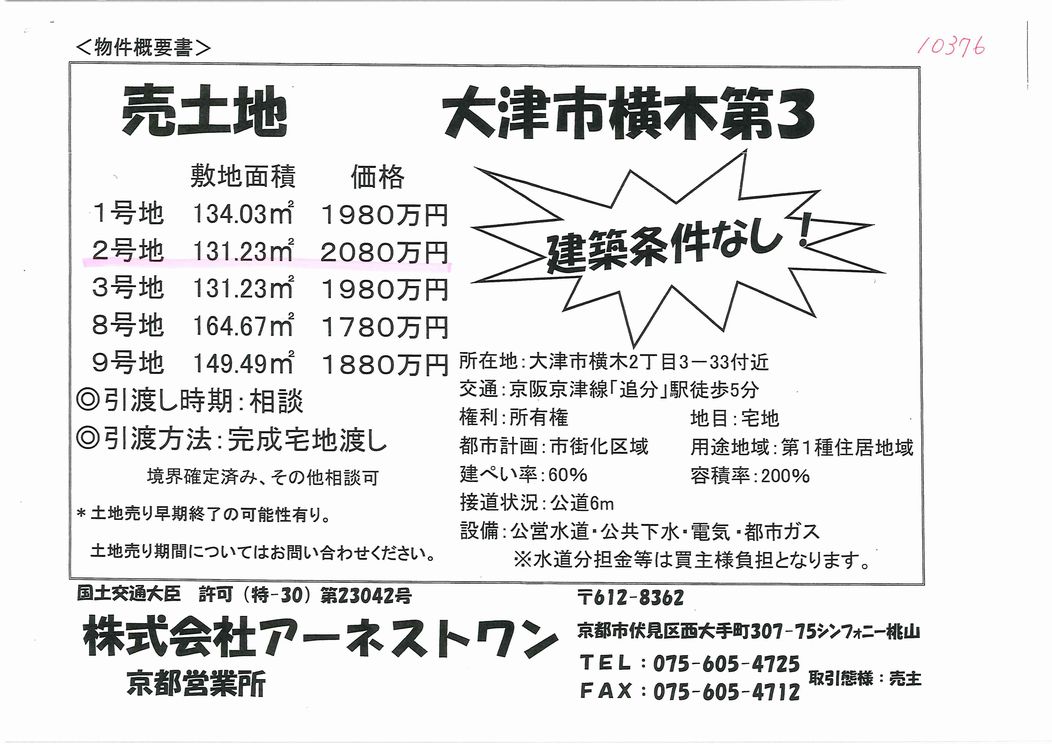 <物件概要書>
10376
売土地 大津市横木第3
敷地面積 価格
1号地 134.03㎡ 1980万円
2号地 131.23㎡ 2080万円
3号地 131.23㎡ 1980万円
8号地 164.67㎡ 1780万円
9号地 149.49㎡ 1880万円
◎引渡し時期:相談
◎引渡方法:完成宅地渡し
境界確定済み、その他相談可
*土地売り早期終了の可能性有り。
土地売り期間についてはお問い合わせください。
建築条件なし!
所在地:大津市横木2丁目3-33付近
交通:京阪京津線「追分」駅徒歩5分
権利:所有権 地目:宅地
都市計画:市街化区域 用途地域:第1種住居地域
建ぺい率:60% 容積率:200%
接道状況:公道6m
設備:公営水道・公共下水・電気・都市ガス
※水道分担金等は買主様負担となります。
国土交通大臣 許可(特-30)第23042号
株式会社アーネストワン
京都営業所
〒612-8362
京都市伏見区西大手町307-75シンフォニー桃山
TEL:075-605-4725
FAX:075-605-4712
取引態様:売主